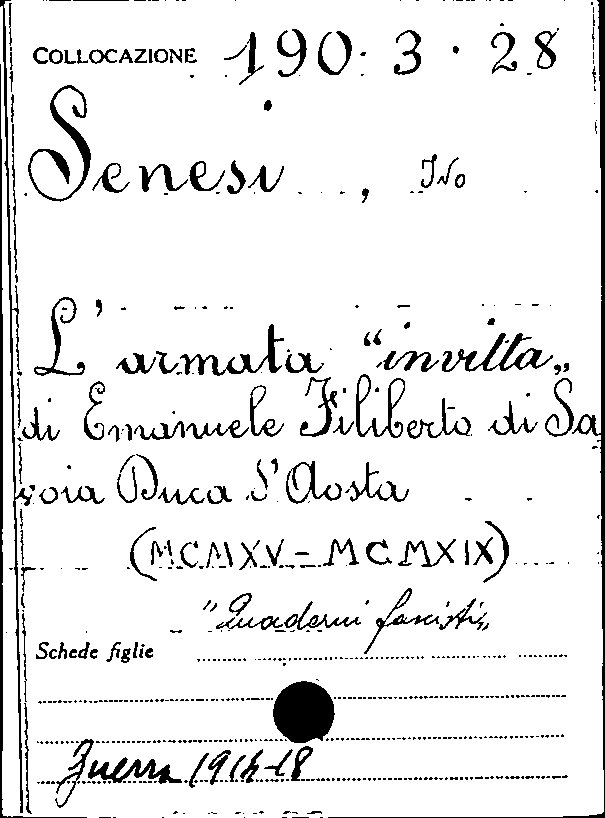 COLLOCAZIONE 190. 3. 28
Senesi, Ivo
L'armata "invitta„
di Emanuele Filiberto di Sa
voia Duca d'Aosta
(MCMXV - MCMXIX)
"Quaderni fascisti„
Schede figlie
Guerra 1914-18